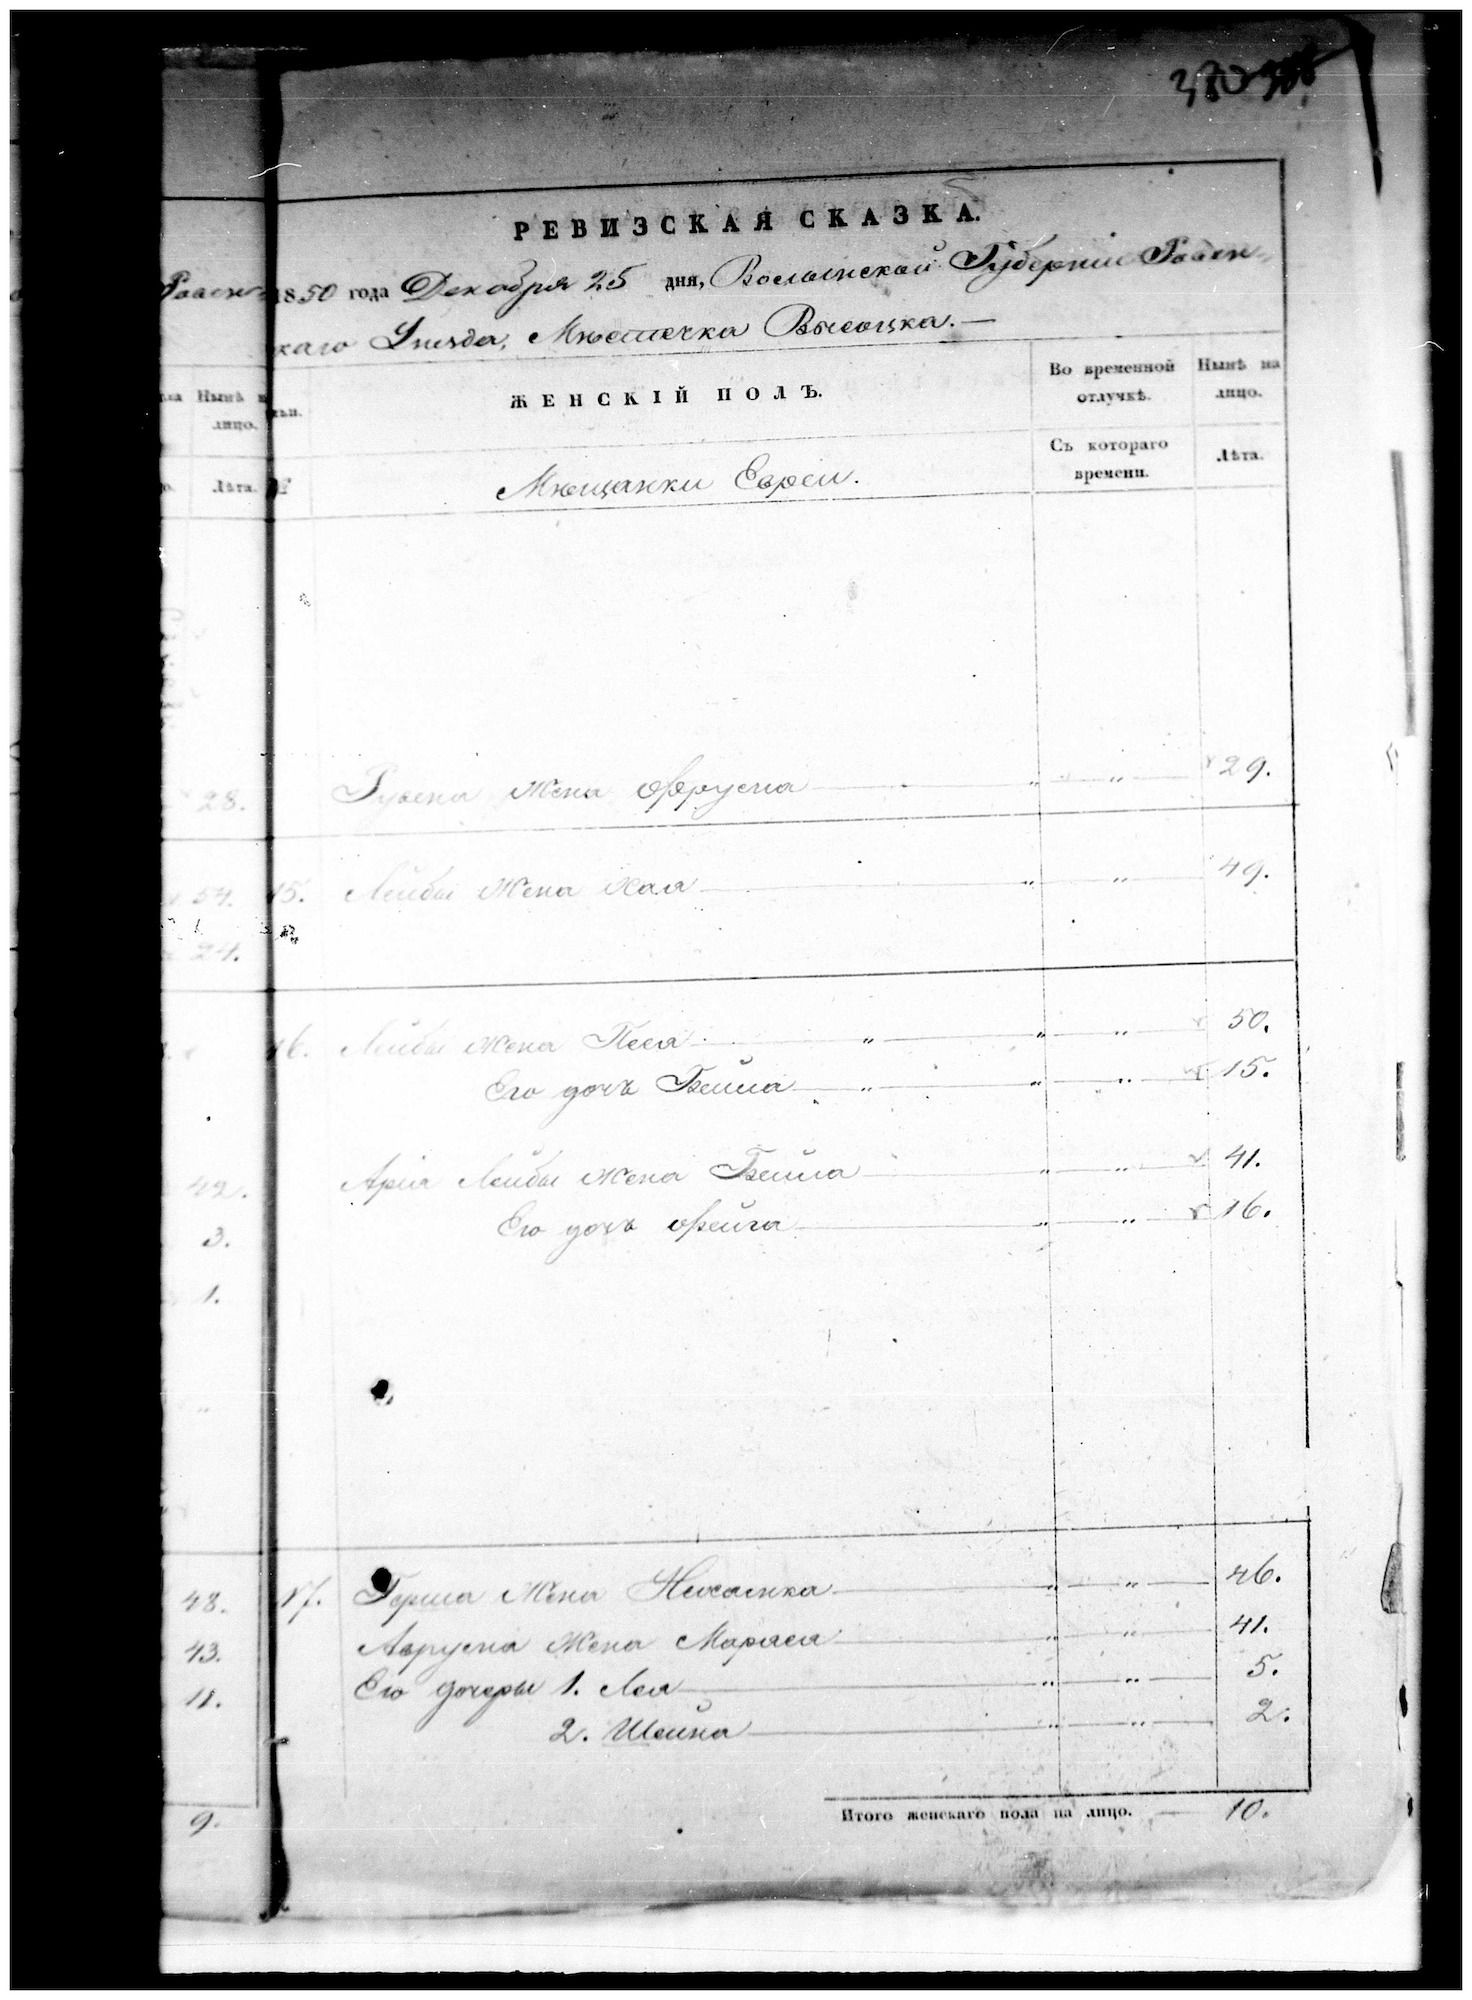 380
РЕВИЗСКАЯ СКАЗКА.
1850 года Декабря 25 дня, Волынской Губернии Ровен-
скаго Уезда, Мѣстечка Высоцка. —
Нынѣ
лицо.
Лѣта.
№
ЖЕНСКІЙ ПОЛЪ.
Во временной
отлучкѣ.
Нынѣ на
лицо.
Съ котораго
времени.
Лѣта.
Мѣщанки Евреи.
28. Рувена жена Фрума „ „ 29.
54. 15. Лейбы жена Хая „ „ 49.
24.
16. Лейбы жена Песя „ „ „ 50.
Его дочь Бейла „ „ „ 15.
42. Арія Лейбы жена Бейла „ „ 41.
3. Его дочь Фейга „ „ 16.
1.
48. 17. Герша жена Нехамка „ „ 46.
43. Аврума жена Маряся „ „ 41.
11. Его дочери 1. Лея „ „ 5.
2. Шейна „ „ 2.
9. Итого женскаго пола на лицо. — 10.